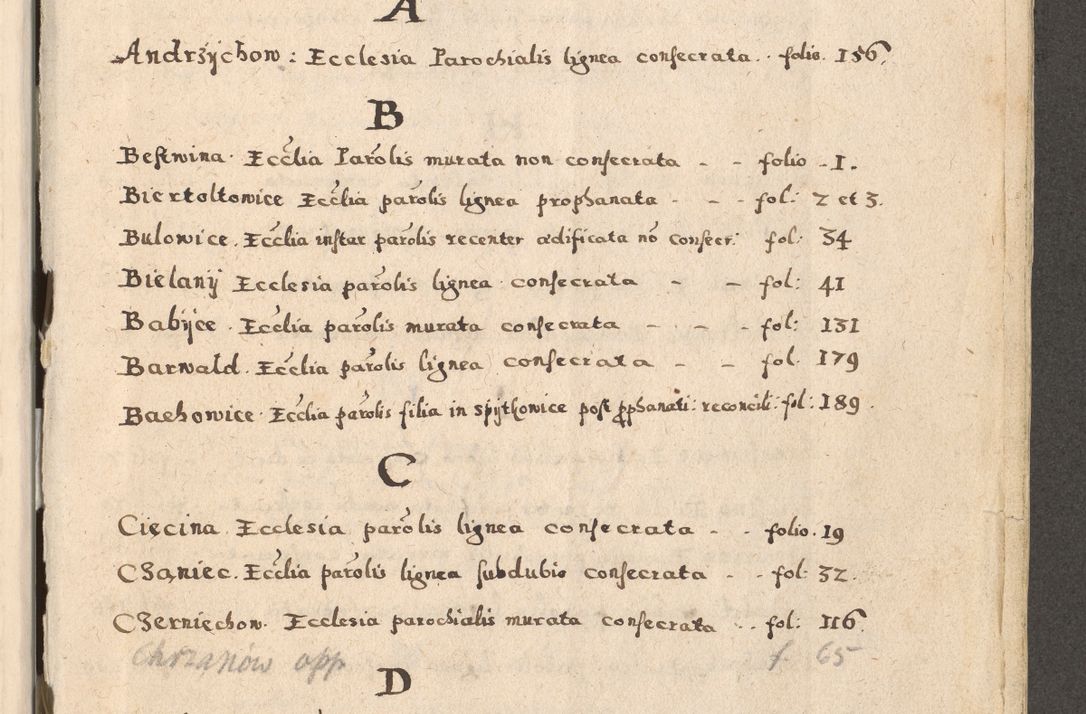 A
Andrzÿchow: Ecclesia Parochialis lignea consecrata. . folio. 156.
B
Bestwina. Ecclia Parolis murata non consecrata - - folio - 1.
Biertoltowice Ecclia parolis lignea prophanata - - - fol: 2 et 3.
Bulowice. Ecclia instar parolis recenter ædificata nō consecr: fol: 34
Bielanÿ Ecclesia parolis lignea consecrata - - fol: 41
Babÿce. Ecclia parolis murata consecrata - - - fol: 131
Barwald. Ecclia parolis lignea consecrata - - fol. 179
Bachowice. Ecclia parolis filia in Spÿtkowice post prophanati: reconcili: fol: 189.
C
Cięcina. Ecclesia parolis lignea consecrata - - folio. 19
Czaniec. Ecclia parolis lignea sub dubio consecrata - - fol: 32.
Czernięchow. Ecclesia parochialis murata consecrata . . fol: 116.
Chrzanów opp. f. 65
D